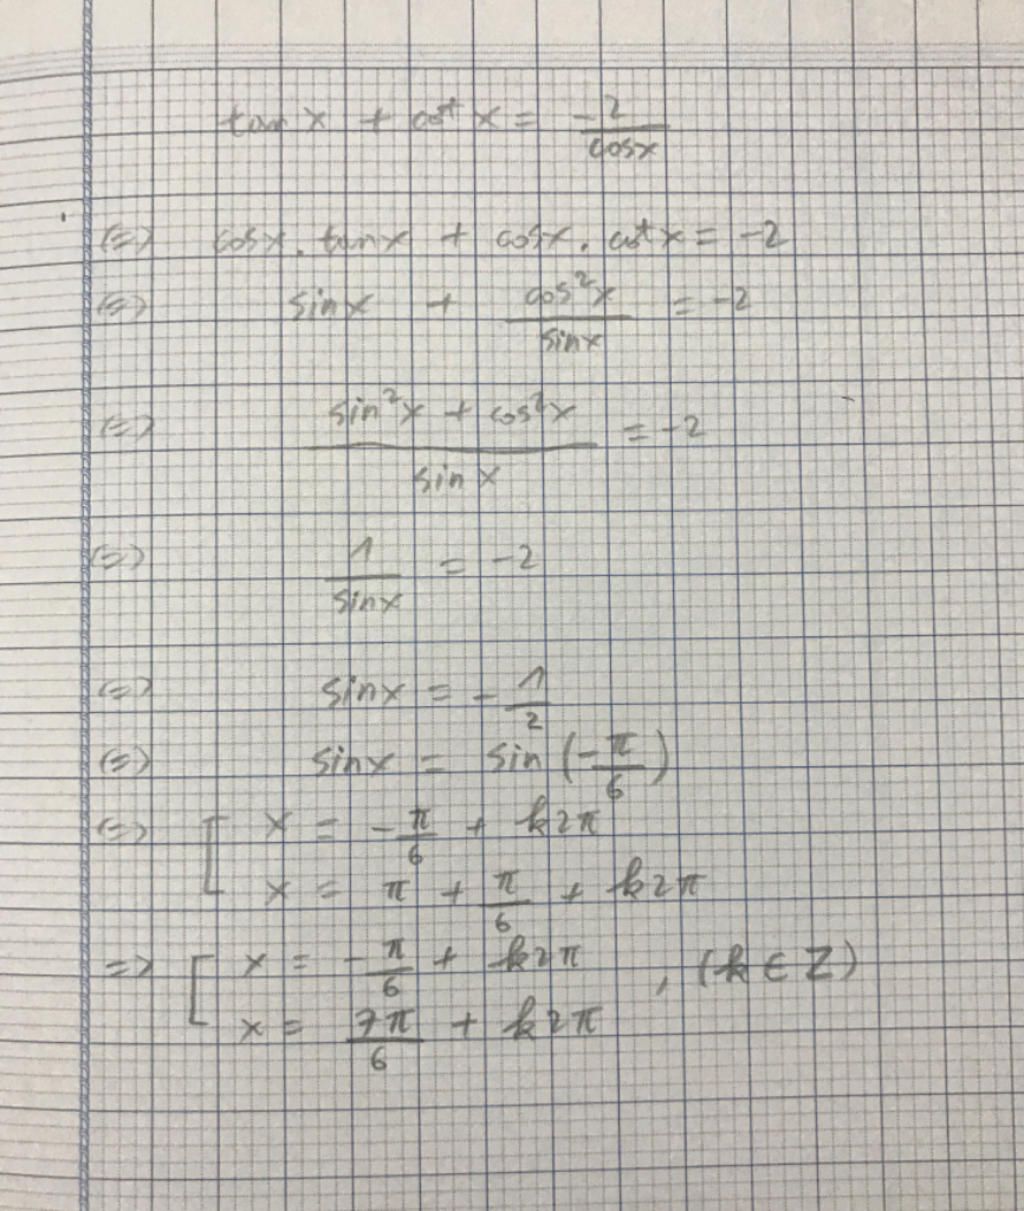 tan x + cot x = -2/cosx
(=) cosx . tanx + cosx . cot x = -2
(=) sinx + cos²x/sinx = -2
(=) (sin²x + cos²x)/sin x = -2
(=) 1/sinx = -2
(=) sinx = -1/2
(=) sinx = sin(-π/6)
(=) [ x = -π/6 + k2π
x = π + π/6 + k2π
=> [ x = -π/6 + k2π , (k ∈ Z)
x = 7π/6 + k2π